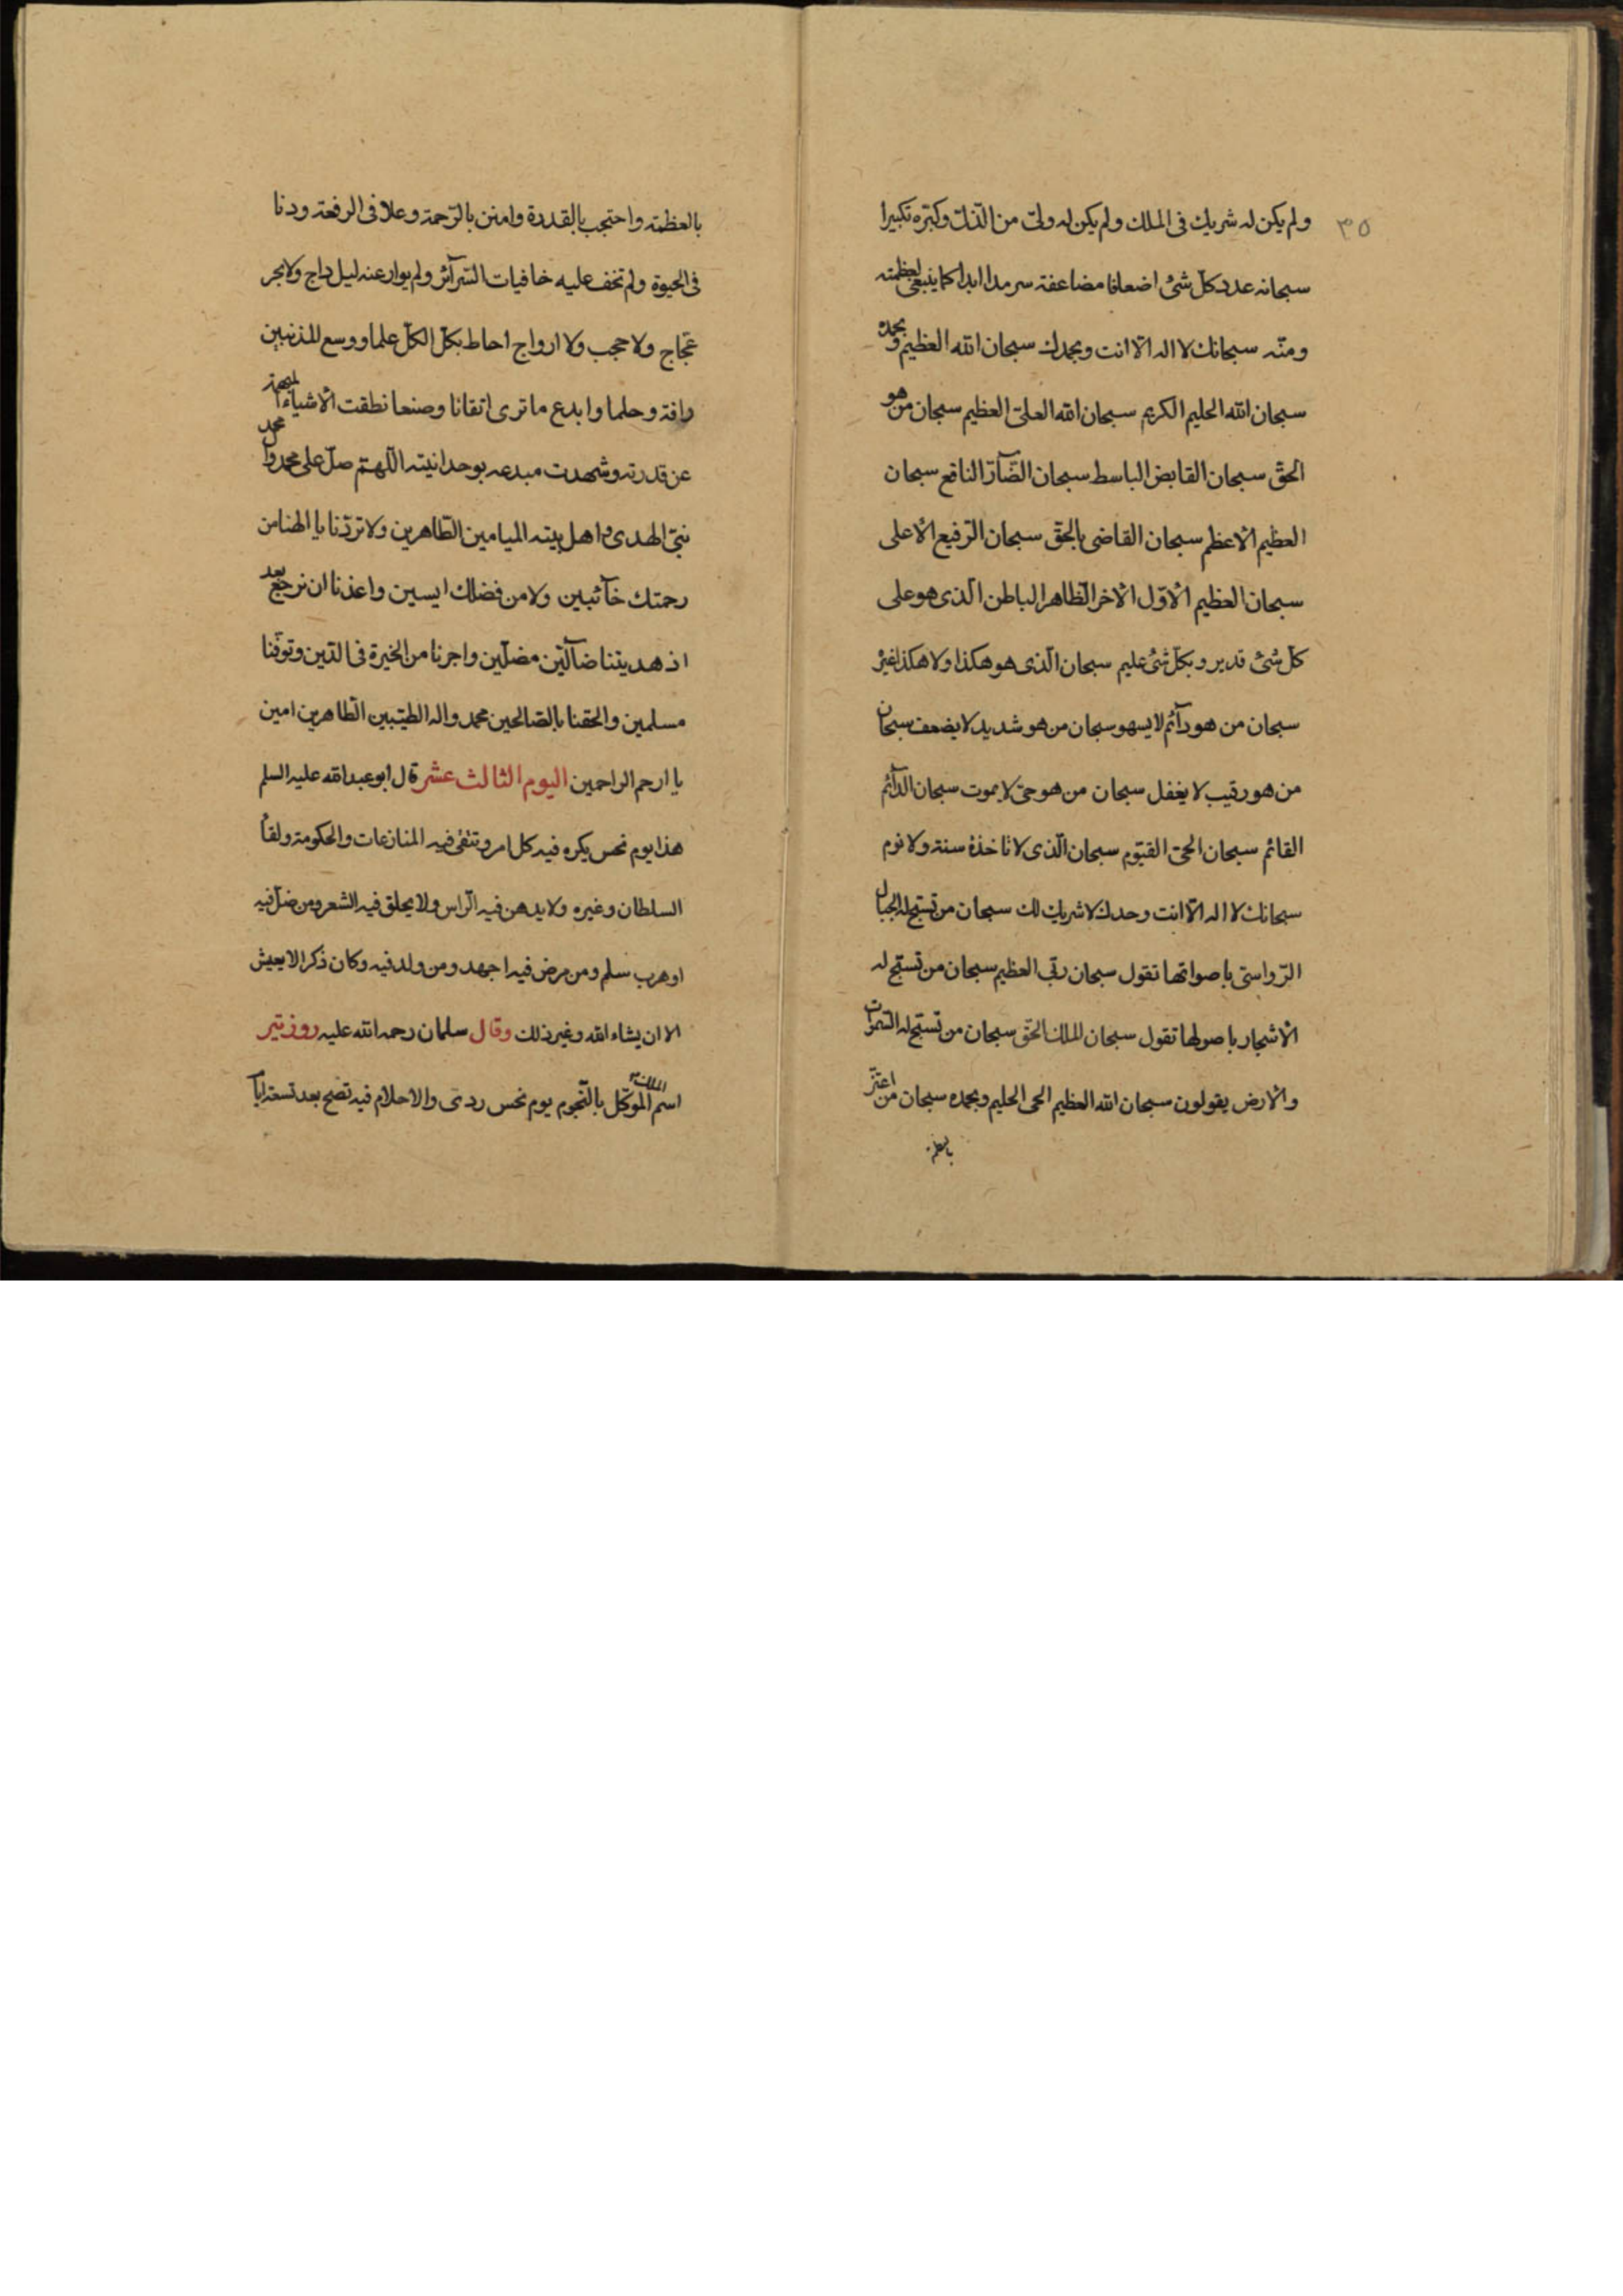 ٣٥
ولم يكن له شريك فى الملك ولم يكن له ولىّ من الذّلّ وكبّره تكبيرا
سبحانه عدد كلّ شئ اضعافا مضاعفة سرمدا ابدا كما ينبغى لعظمته
ومنّه سبحانك لا اله الّا انت وبحمدك سبحان الله العظيم وبحمده
سبحان الله الحليم الكريم سبحان الله العلىّ العظيم سبحان من هو
الحقّ سبحان القابض الباسط سبحان الضّآرّ النافع سبحان
العظيم الأعظم سبحان القاضى بالحقّ سبحان الرّفيع الأعلى
سبحان العظيم الأوّل الأخر الظّاهر الباطن الّذى هو على
كلّ شئ قدير وبكلّ شئ عليم سبحان الّذى هو هكذا ولا هكذا غيره
سبحان من هو دآئم لا يسهو سبحان من هو شديد لا يضعف سبحان
من هو رقيب لا يغفل سبحان من هو حىّ لا يموت سبحان الدّآئم
القائم سبحان الحىّ القيّوم سبحان الّذى لا تاخذه سنة ولا نوم
سبحانك لا اله الّا انت وحدك لا شريك لك سبحان من تسبّح له الجبال
الرّواسى باصواتها تقول سبحان ربّى العظيم سبحان من تسبّح له
الأشجار باصولها تقول سبحان الملك الحقّ سبحان من تسبّح له السّموات
والأرض يقولون سبحان الله العظيم الحى الحليم وبحمده سبحان من اعتزّ
بالعظمة
بالعظمة واحتجب بالقدرة وامتنن بالرّحمة وعلا فى الرفعة ودنا
فى الحيوة ولم تخف عليه خافيات السّرآئر ولم يوار عنه ليل داج ولا بحر
عجّاج ولا حجب ولا ارواج احاط بكلّ الكلّ علما ووسع المذنبين
رافة وحلما وابدع ما ترى اتقانا وصنعا نطقت الأشياء المبهمة
عن قدرته وشهدت مبدعه بوحدانيته اللّهمّ صلّ على محمد وآل محمد
نبىّ الهدى واهل بيته الميامين الطّاهرين ولا تردّنا يا الهنا من
رحمتك خآئبين ولا من فضلك ايسين واعذنا ان نرجع بعد
اذ هديتنا ضآلّين مضلّين واجرنا من الحيرة فى الدّين وتوفّنا
مسلمين والحقنا بالصّالحين محمد واله الطيّبين الطّاهرين امين
يا ارحم الراحمين اليوم الثالث عشر قال ابو عبد الله عليه السلم
هذا يوم نحس يكره فيه كل امر وتتّقى فيه المنازعات والحكومة ولقآ
السلطان وغيره ولا يدهن فيه الرّاس ولا يحلق فيه الشعر ومن ضلّ فيه
او هرب سلم ومن مرض فيه اجهد ومن ولد فيه وكان ذكرا لا يعيش
الا ان يشاء الله وغير ذلك وقال سلمان رحمه الله عليه روز تير
اسم الملك الموكّل بالنّجوم يوم نحس ردىّ والاحلام فيه تصح بعد تسعة ايآ